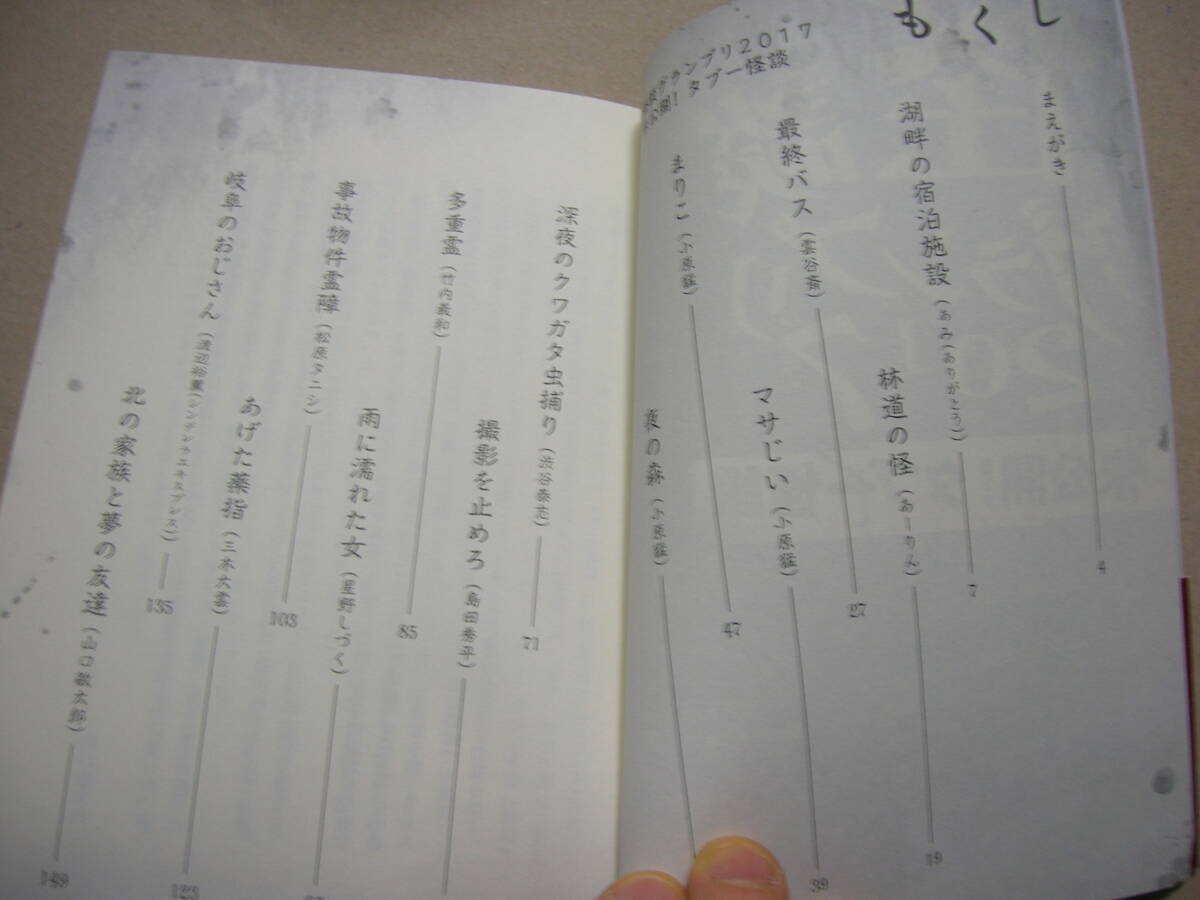 もくじ
まえがき 4
湖畔の宿泊施設(あみ(ありがとう)) 7
林道の怪(あーりん) 19
最終バス(雲谷斎) 27
マサじい(小原猛) 39
まりこ(小原猛) 47
夜の森(小原猛)
グランプリ2017
公開!タブー怪談
深夜のクワガタ虫捕り(渋谷泰志) 71
撮影を止めろ(島田秀平)
多重霊(竹内義和) 85
雨に濡れた女(星野しづく)
事故物件霊障(松原タニシ) 103
あげた薬指(三木大雲) 123
岐阜のおじさん(渡辺裕薫(シンデレラエキスプレス)) 135
北の家族と夢の友達(山口敏太郎) 149